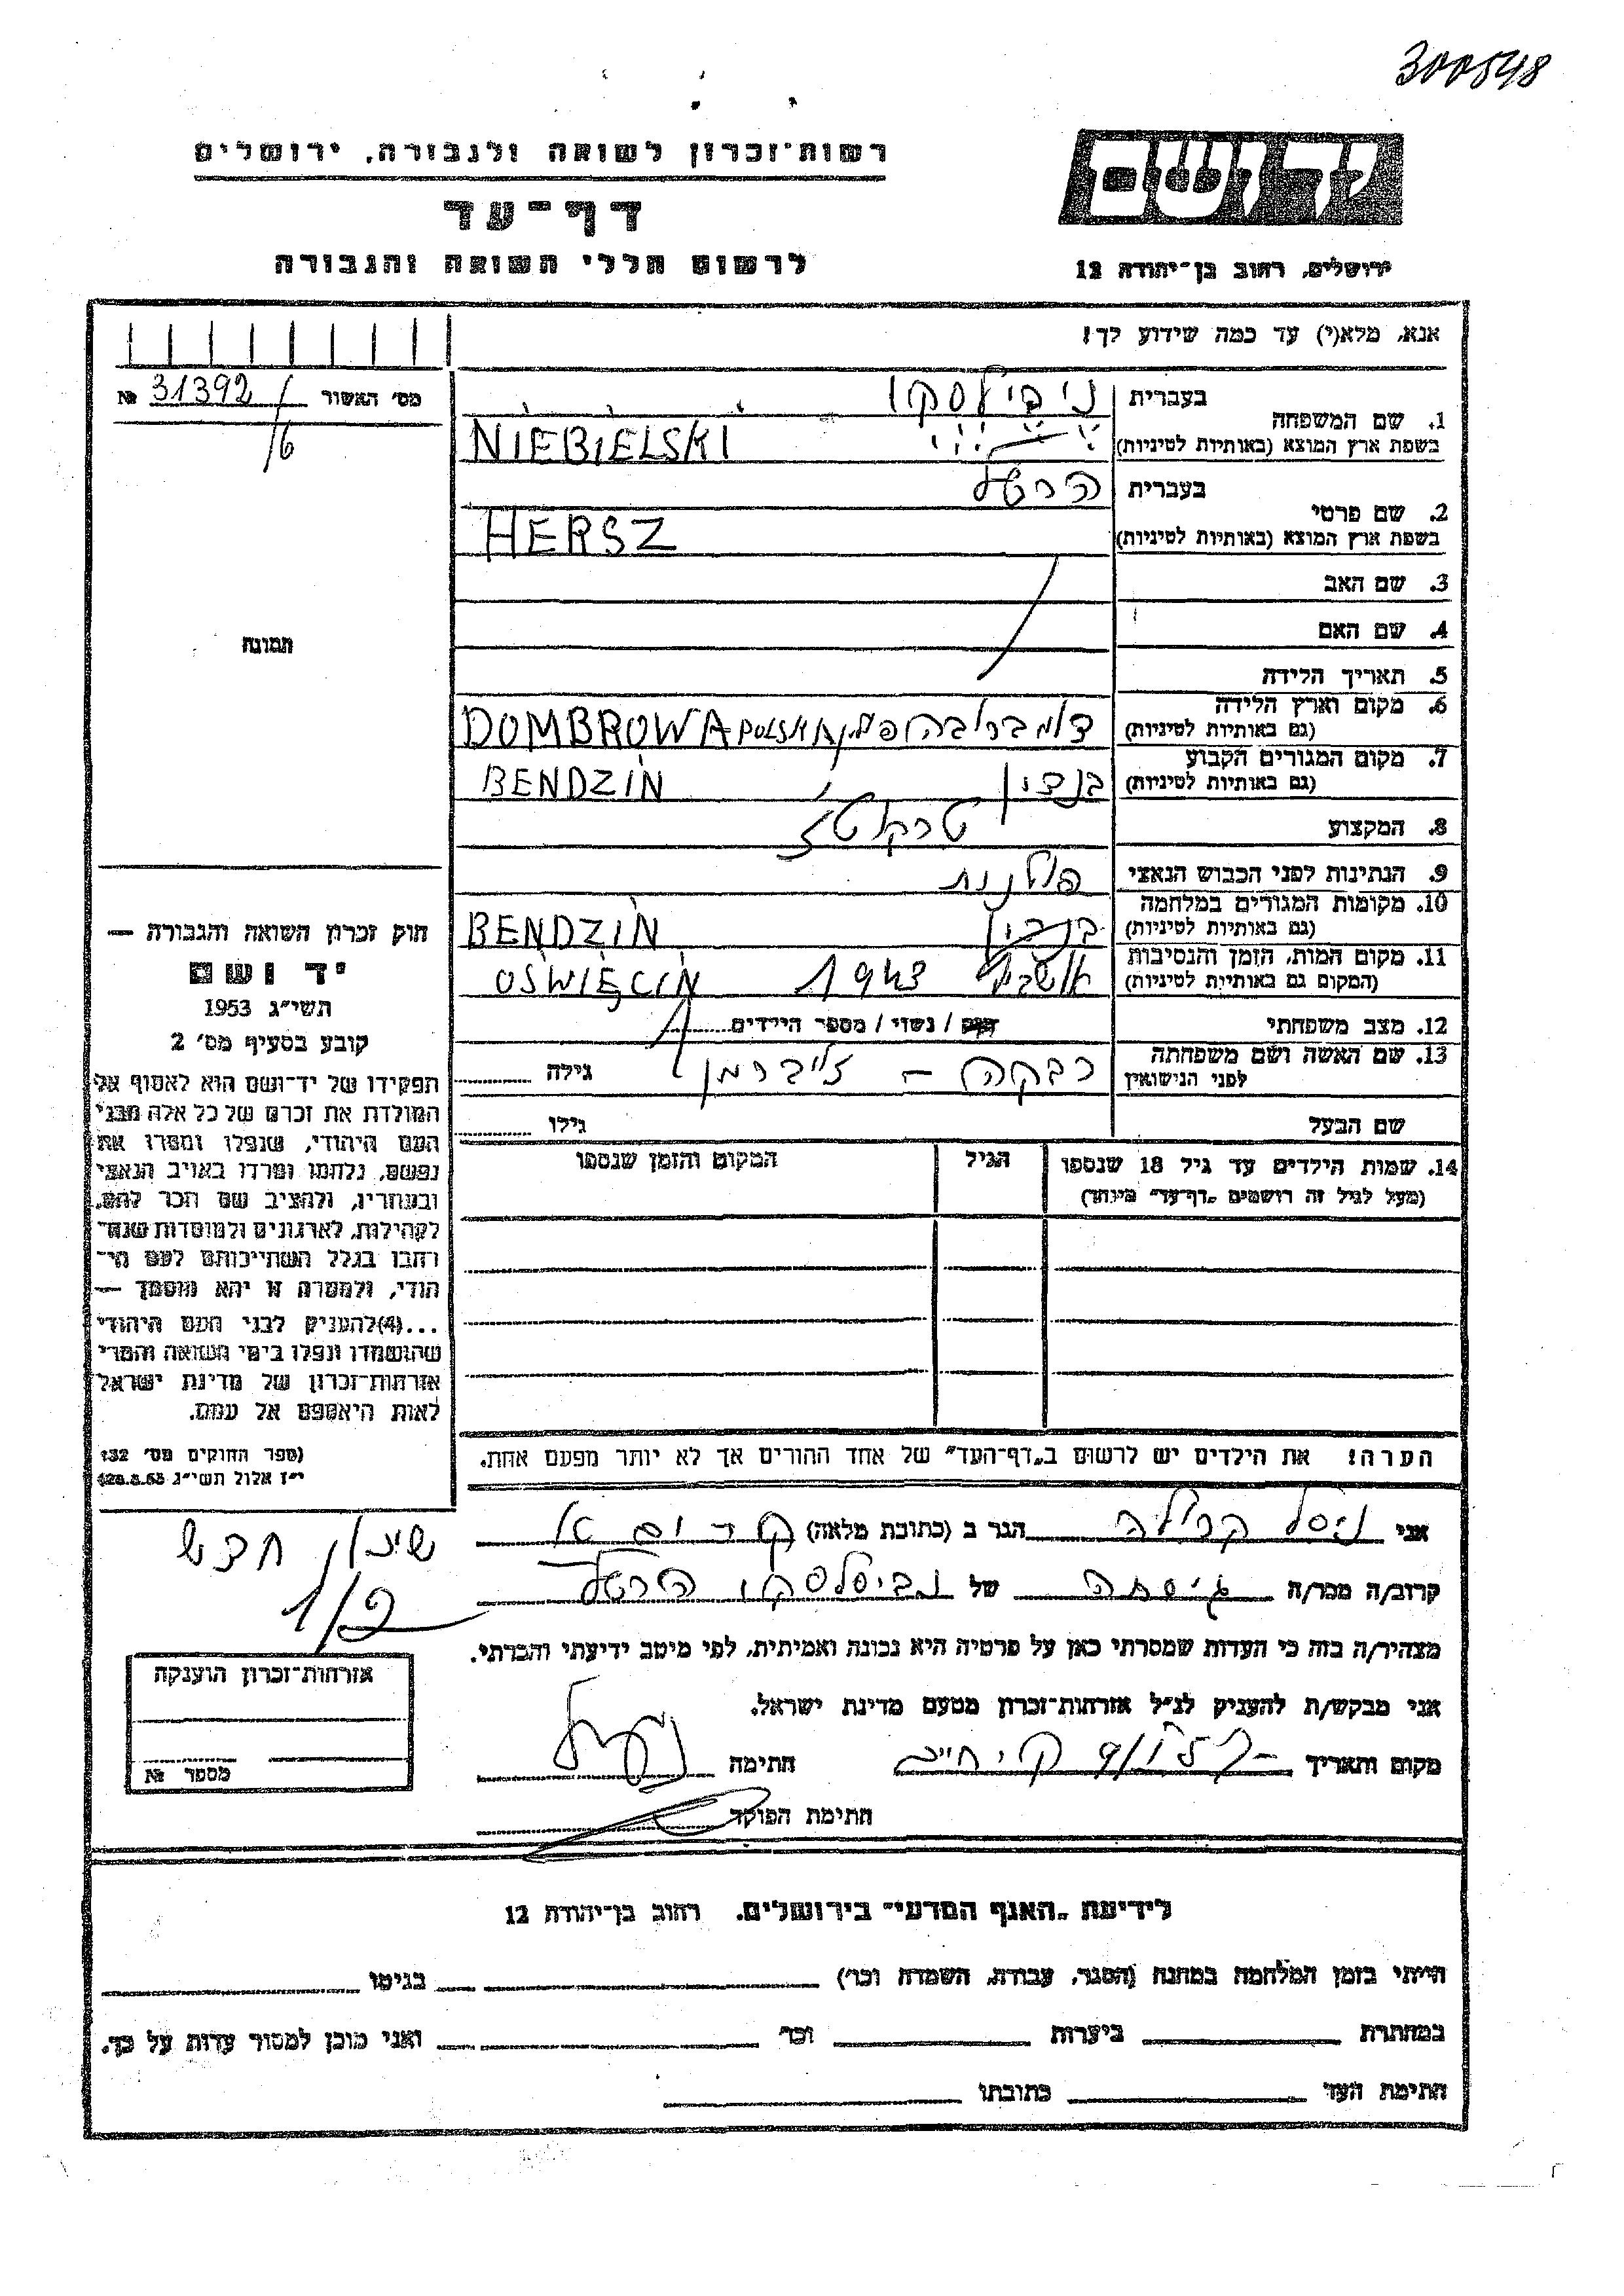 300548
רשות־זכרון לשואה ולגבורה, ירושלים
יד ושם
דף־עד
לרשום חללי השואה והגבורה
ירושלים, רחוב בן־יהודה 12
אנא, מלא(י) עד כמה שידוע לך!
מס' האשור 31392 №
/16
תמונה
חוק זכרון השואה והגבורה —
יד ושם
תשי״ג 1953
קובע בסעיף מס' 2
תפקידו של יד־ושם הוא לאסוף אל
המולדת את זכרם של כל אלה מבני
העם היהודי, שנפלו ומסרו את
נפשם, נלחמו ומרדו באויב הנאצי
ובעוזריו, ולהציב שם וזכר להם,
לקהילות, לארגונים ולמוסדות שנח־
רחבו בגלל השתייכותם לעם הי־
הודי, ולמטרה זו יהא מוסמך —
...(4)להעניק לבני העם היהודי
שהושמדו ונפלו בימי השואה והמרי
אזרחות־זכרון של מדינת ישראל
לאות היאספם אל עמם.
(ספר החוקים מס' 132
י״ז אלול תשי״ג 28.8.53)
1. שם המשפחה בעברית ניבילסקי
בשפת ארץ המוצא (באותיות לטיניות) NIEBIELSKI
2. שם פרטי בעברית הרשל
בשפת ארץ המוצא (באותיות לטיניות) HERSZ
3. שם האב
4. שם האם
5. תאריך הלידה
6. מקום וארץ הלידה (גם באותיות לטיניות) DOMBROWA POLSKA
7. מקום המגורים הקבוע (גם באותיות לטיניות) בנדזין BENDZIN
8. המקצוע
9. הנתינות לפני הכבוש הנאצי פולנית
10. מקומות המגורים במלחמה (גם באותיות לטיניות) בנדזין BENDZIN
11. מקום המות, הזמן והנסיבות (המקום גם באותיות לטיניות) 1943 OŚWIĘCIN
12. מצב משפחתי רווק / נשוי / מספר הילדים 1
13. שם האשה ושם משפחתה לפני הנישואין רבקה – ליברמן גילה
שם הבעל גילו
14. שמות הילדים עד גיל 18 שנספו הגיל המקום והזמן שנספו
(מעל לגיל זה רושמים „דף־עד״ מיוחד)
הערה! את הילדים יש לרשום ב„דף־העד״ של אחד ההורים אך לא יותר מפעם אחת.
אני הגר ב (כתובת מלאה)
שיכון חדש
קרוב/ה מכר/ה גיסה של הרשל
1/2
מצהיר/ה בזה כי העדות שמסרתי כאן על פרטיה היא נכונה ואמיתית, לפי מיטב ידיעתי והכרתי.
אני מבקש/ת להעניק לנ״ל אזרחות־זכרון מטעם מדינת ישראל.
מקום ותאריך חתימה
חתימת הפוקד
אזרחות־זכרון הוענקה
מספר №
לידיעת „האגף המדעי״ בירושלים, רחוב בן־יהודה 12
הייתי בזמן המלחמה במחנה (הסגר, עבודה, השמדה וכו') בגיטו
במחתרת ביערות וכו' ואני מוכן למסור עדות על כך.
חתימת העד כתובתו